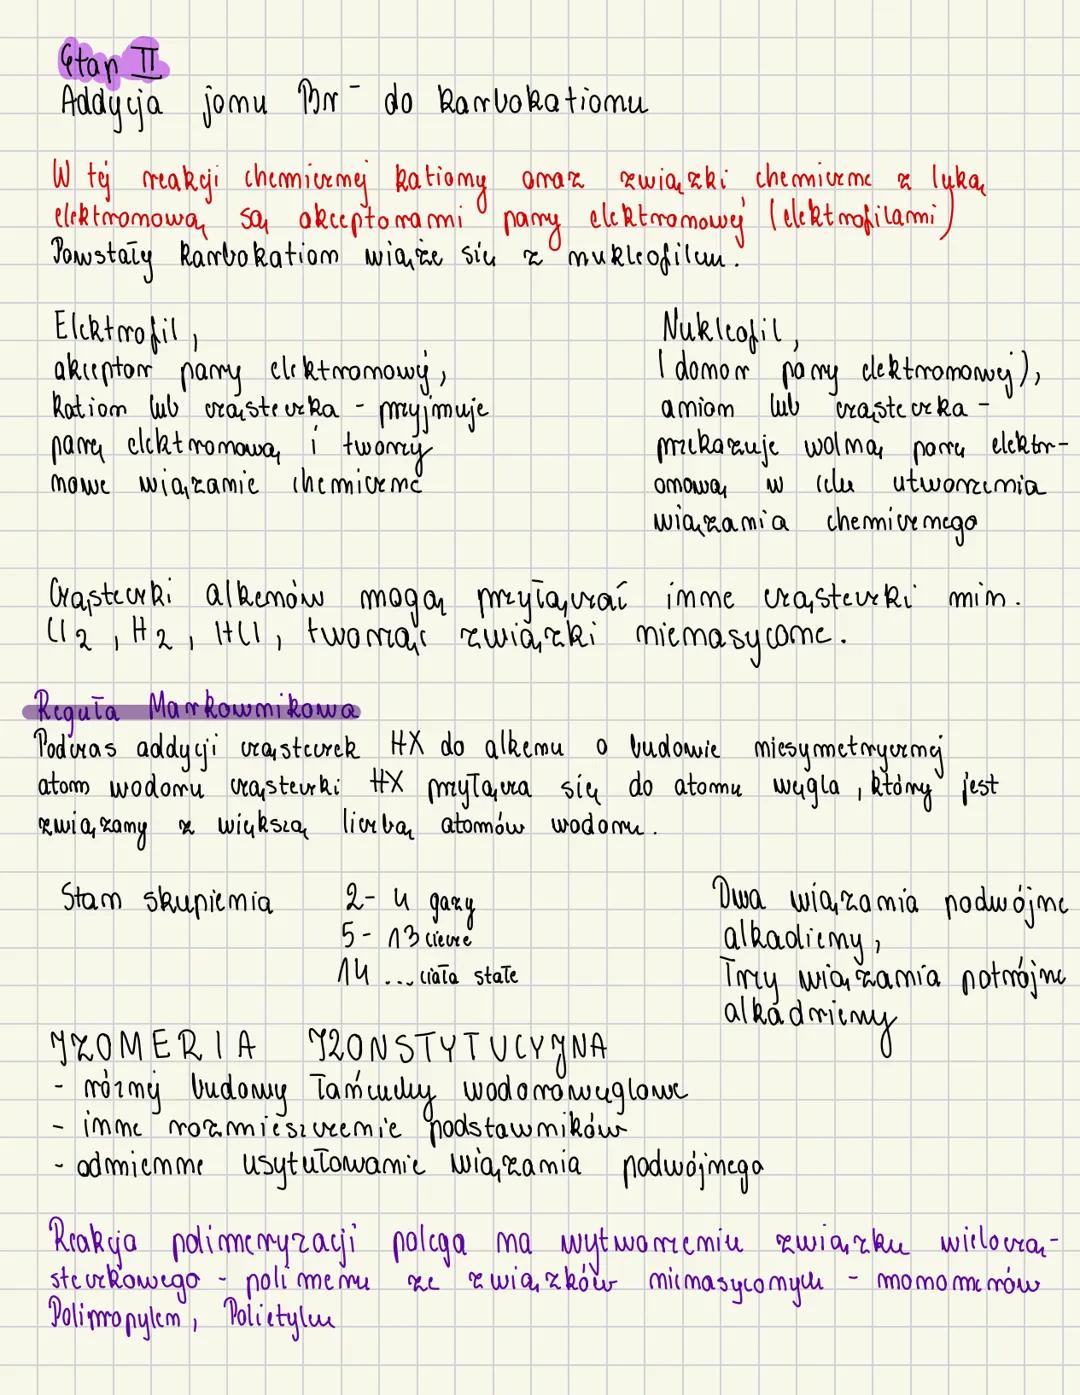 Etap II
Addycja jonu Br⁻ do karbokationu
W tej reakcji chemicznej kationy oraz związki chemiczne z luką
elektronową są akceptorami pary elektronowej (elektrofilami)
Powstały karbokation wiąże się z nukleofilem.
Elektrofil,
akceptor pary elektronowej,
kation lub cząsteczka - przyjmuje
parę elektronową i tworzy
nowe wiązanie chemiczne
Nukleofil,
(donor pary elektronowej),
anion lub cząsteczka -
przekazuje wolną parę elektr-
onową w celu utworzenia
wiązania chemicznego
Cząsteczki alkenów mogą przyłączać inne cząsteczki min.
Cl2, H2, HCl, tworząc związki nienasycone.
Reguła Markownikowa
Podczas addycji cząsteczek HX do alkenu o budowie niesymetrycznej
atom wodoru cząsteczki HX przyłącza się do atomu węgla, który jest
związany z większą liczbą atomów wodoru.
Stan skupienia
2-4 gazy
5-13 ciecze
14 ... ciała stałe
Dwa wiązania podwójne
alkadieny,
Trzy wiązania potrójne
alkadrieny
IZOMERIA IZONSTYTUCYJNA
- różnej budowy łańcuchy wodorowęglowe
- inne rozmieszczenie podstawników
- odmienne usytułowanie wiązania podwójnego
Reakcja polimeryzacji polega na wytworzeniu związku wieloczą-
steczkowego - polimeru ze związków nienasyconych - monomerów
Polipropylen, Polietylen